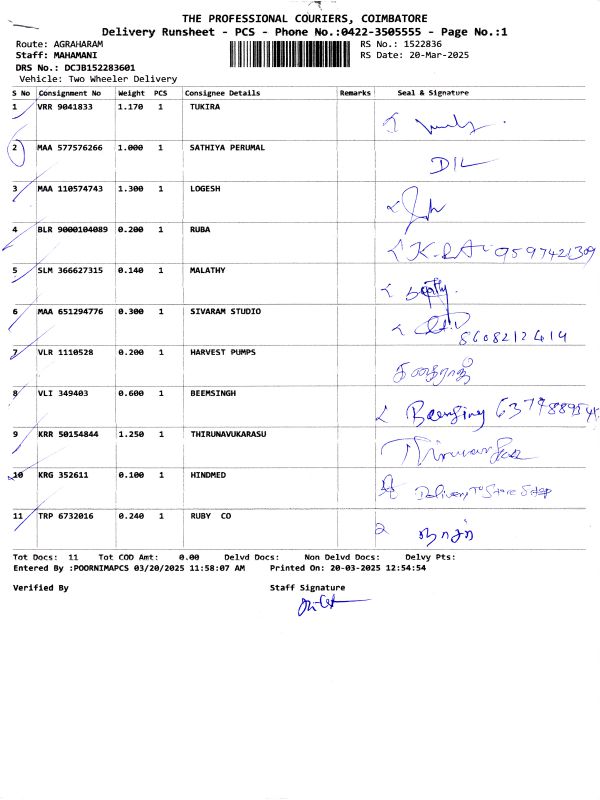 THE PROFESSIONAL COURIERS, COIMBATORE
Delivery Runsheet - PCS - Phone No.:0422-3505555 - Page No.:1
Route: AGRAHARAM RS No.: 1522836
Staff: MAHAMANI RS Date: 20-Mar-2025
DRS No.: DCJB152283601
Vehicle: Two Wheeler Delivery
S No Consignment No Weight PCS Consignee Details Remarks Seal & Signature
1 VRR 9041833 1.170 1 TUKIRA
2 MAA 577576266 1.000 1 SATHIYA PERUMAL
DIL
3 MAA 110574743 1.300 1 LOGESH
4 BLR 9000104089 0.200 1 RUBA
9597421309
5 SLM 366627315 0.140 1 MALATHY
6 MAA 651294776 0.300 1 SIVARAM STUDIO
7 VLR 1110528 0.200 1 HARVEST PUMPS
8 VLI 349403 0.600 1 BEEMSINGH
9 KRR 50154844 1.250 1 THIRUNAVUKARASU
10 KRG 352611 0.100 1 HINDMED
Delivery To Store
11 TRP 6732016 0.240 1 RUBY CO
Tot Docs: 11 Tot COD Amt: 0.00 Delvd Docs: Non Delvd Docs: Delvy Pts:
Entered By :POORNIMAPCS 03/20/2025 11:58:07 AM Printed On: 20-03-2025 12:54:54
Verified By Staff Signature